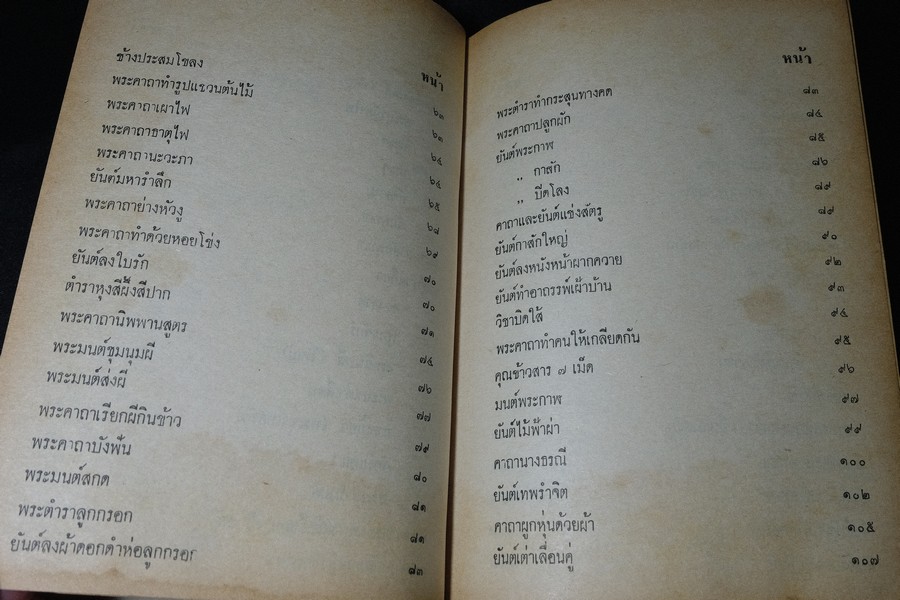 หน้า
ช้างประสมโขลง ๖๓
พระคาถาทำรูปแขวนต้นไม้ ๖๓
พระคาถาเผาไฟ ๖๔
พระคาถาธาตุไฟ ๖๔
พระคาถานะวะภา ๖๕
ยันต์มหารำลึก ๖๘
พระคาถาย่างหัวงู ๖๙
พระคาถาทำด้วยหอยโข่ง ๗๐
ยันต์ลงใบรัก ๗๐
ตำราหุงสีผึ้งสีปาก ๗๑
พระคาถานิพพานสูตร ๗๔
พระมนต์ชุมนุมผี ๗๖
พระมนต์ส่งผี ๗๗
พระคาถาเรียกผีกินข้าว ๗๙
พระคาถาบังฟัน ๘๐
พระมนต์สกด ๘๑
พระตำราลูกกรอก ๘๑
ยันต์ลงผ้าดอกดำห่อลูกกรอก ๘๓
หน้า
พระตำราทำกระสุนทางคด ๘๓
พระคาถาปลูกผัก ๘๔
ยันต์พระกาฬ ๘๕
,, กาสัก ๘๖
,, ปีดโลง ๘๙
คาถาและยันต์แช่งสัตรู ๘๙
ยันต์กาสักใหญ่ ๙๐
ยันต์ลงหนังหน้าผากควาย ๙๒
ยันต์ทำอาถรรพ์เฝ้าบ้าน ๙๓
วิชาบิดใส้ ๙๔
พระคาถาทำคนให้เกลียดกัน ๙๕
คุณข้าวสาร ๗ เม็ด ๙๖
มนต์พระกาฬ ๙๗
ยันต์ไม้ฟ้าผ่า ๙๙
คาถานางธรณี ๑๐๐
ยันต์เทพรำจิต ๑๐๒
คาถาผูกหุ่นด้วยผ้า ๑๐๕
ยันต์เต่าเลื่อนคู่ ๑๐๗